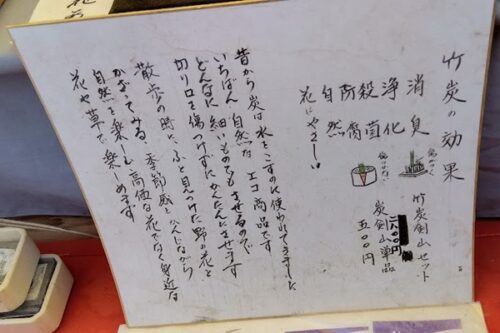 竹炭の効果
竹炭剣山セット
炭剣山単品
五〇〇円
消臭
浄化
殺菌
防腐
自然
花にやさしい
昔から炭は水をこすのに使われてきました
いちばん自然なエコ商品です
どんなに細いものでもさせるので
切り口を傷つけずにかんたんにさせます
散歩の時にふと見つけた野の花を
かざってみる。季節感をかんじながら
自然を楽しむ高価な花でなく身近な
花や草で楽しめます。